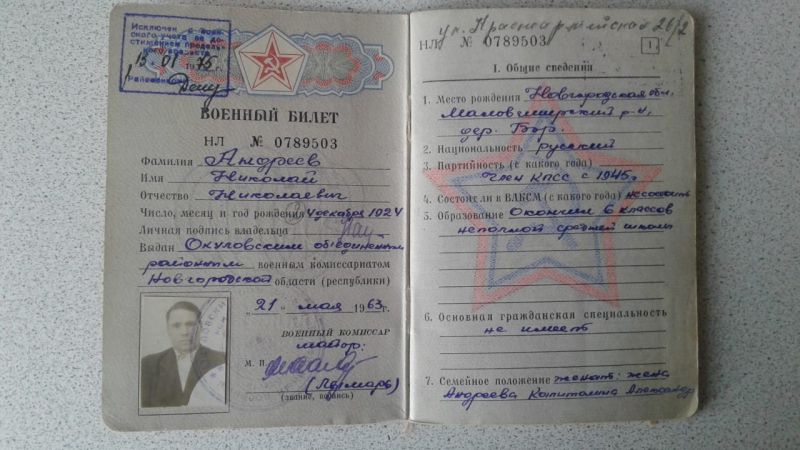 Исключен с воин-
ского учета за до-
стижением предель-
ного возраста
15.01 1975
Районный
ВОЕННЫЙ БИЛЕТ
НЛ № 0789503
Фамилия Андреев
Имя Николай
Отчество Николаевич
Число, месяц и год рождения 4 декабря 1924
Личная подпись владельца
Выдан Окуловским объединенным
районным военным комиссариатом
Новгородской области (республики)
„21" мая 1963г.
ВОЕННЫЙ КОМИССАР
майор:
М. П.
(звание, подпись)
ул. Красноармейская 26/2
НЛ № 0789503
1
I. Общие сведения
1. Место рождения Новгородская обл.
Маловишерский р-н,
дер. Бор.
2. Национальность русский
3. Партийность (с какого года)
Член КПСС с 1945г
4. Состоял ли в ВЛКСМ (с какого года) не состоит
5. Образование Окончил 6 классов
неполной средней школы
6. Основная гражданская специальность
не имеет
7. Семейное положение женат: жена
Андреева Капитолина Александр